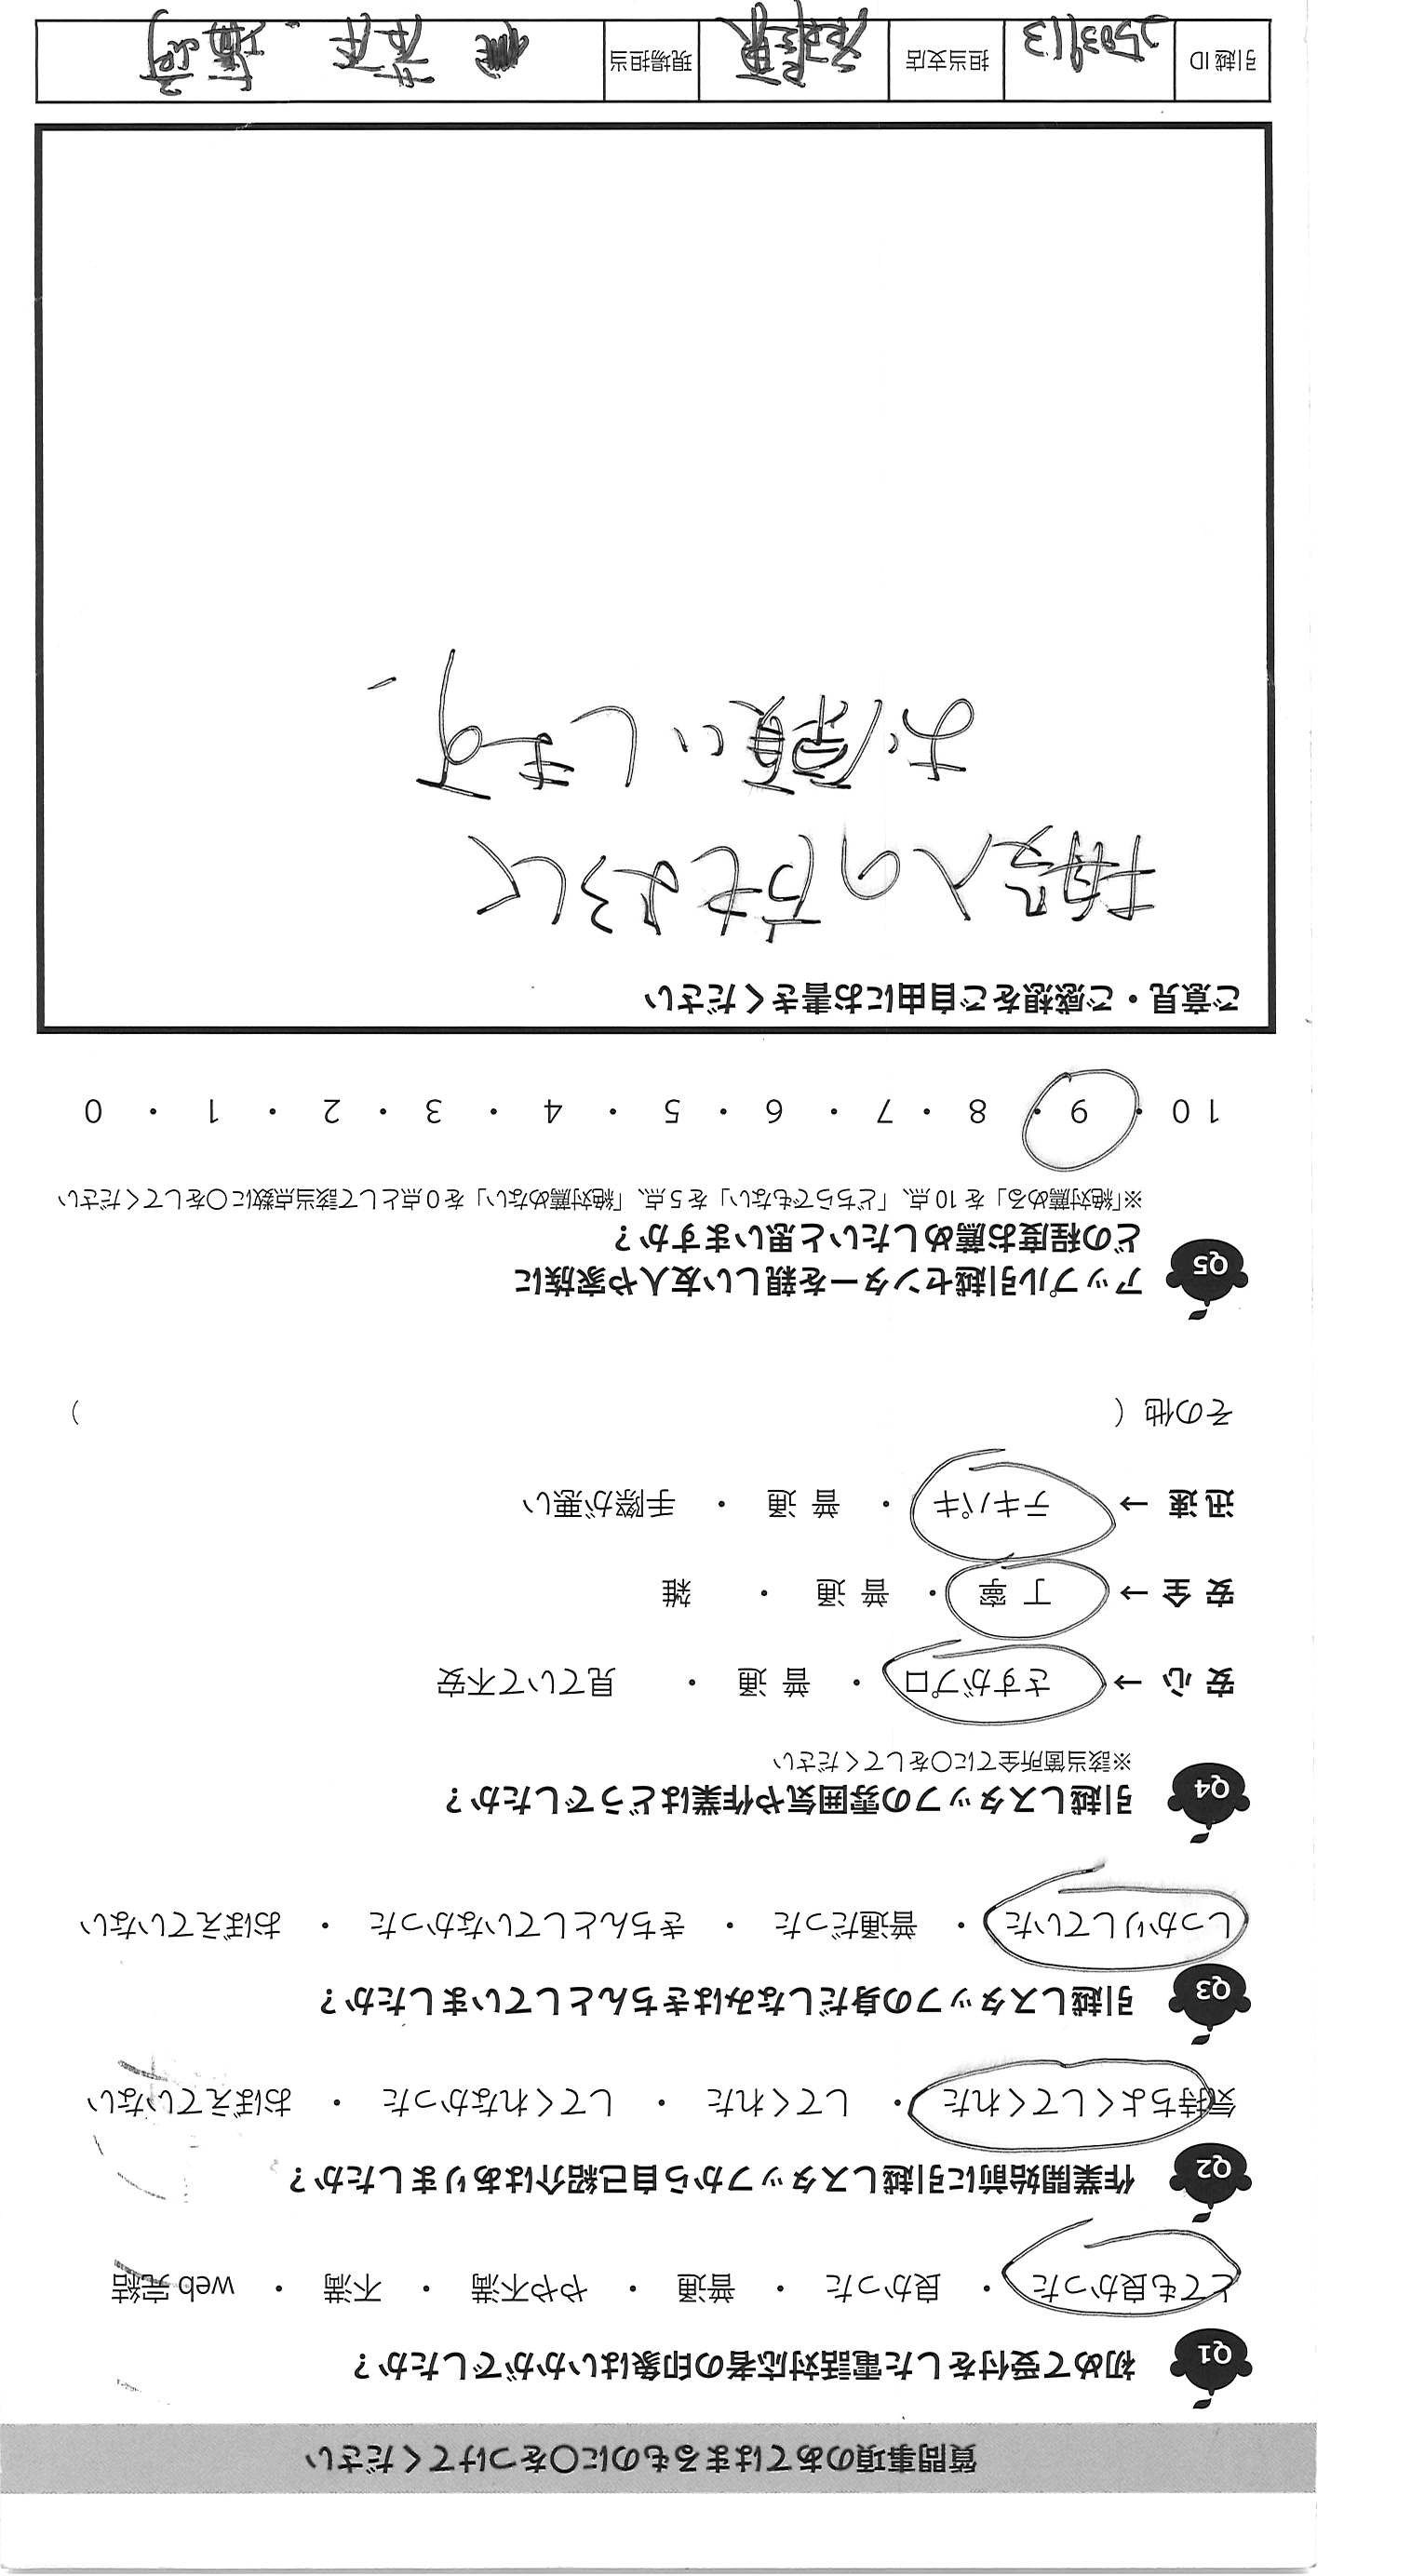 質問事項のあてはまるものに〇をつけてください
Q1 初めて受付をした電話対応者の印象はいかがでしたか？
とても良かった ・ 良かった ・ 普通 ・ やや不満 ・ 不満 ・ web 完結
Q2 作業開始前に引越しスタッフから自己紹介はありましたか？
気持ちよくしてくれた ・ してくれた ・ してくれなかった ・ おぼえていない
Q3 引越しスタッフの身だしなみはきちんとしていましたか？
しっかりしていた ・ 普通だった ・ きちんとしていなかった ・ おぼえていない
Q4 引越しスタッフの雰囲気や作業はどうでしたか？
※該当箇所全てに〇をしてください
安 心 → さすがプロ ・ 普 通 ・ 見ていて不安
安 全 → 丁 寧 ・ 普 通 ・ 雑
迅 速 → テキパキ ・ 普 通 ・ 手際が悪い
その他（ ）
Q5 アップル引越センターを親しい友人や家族に
どの程度お薦めしたいと思いますか？
※「絶対薦める」を 10 点、「どちらでもない」を 5 点、「絶対薦めない」を 0 点として該当点数に〇をしてください
10 ・ 9 ・ 8 ・ 7 ・ 6 ・ 5 ・ 4 ・ 3 ・ 2 ・ 1 ・ 0
ご意見・ご感想をご自由にお書きください
搬入の方もよろしく
お願いします
引越 ID 担当支店 現場担当